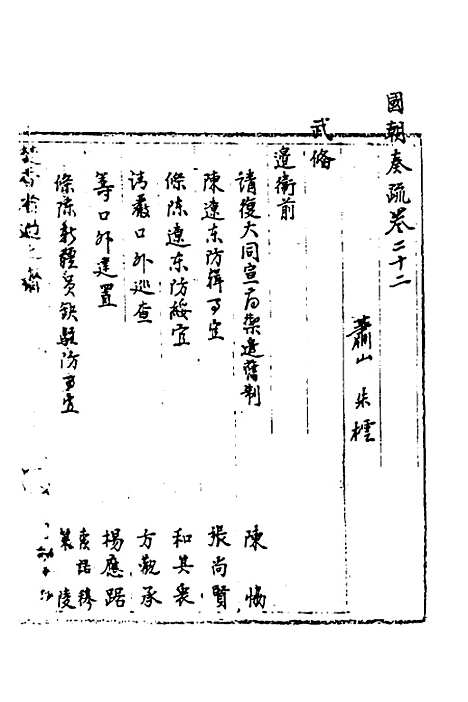 國朝奏疏卷二十二
蕭山 朱橒
武備
邊衛前
請復大同宣府禦邊舊制 陳
陳遼東防輯事宜 張尚賢
條陳遼東防綏宜 和其衷
請嚴口外巡查 方觀承
等口外建置 楊應琚
條陳新疆員缺駐防事宜 索諾穆策凌